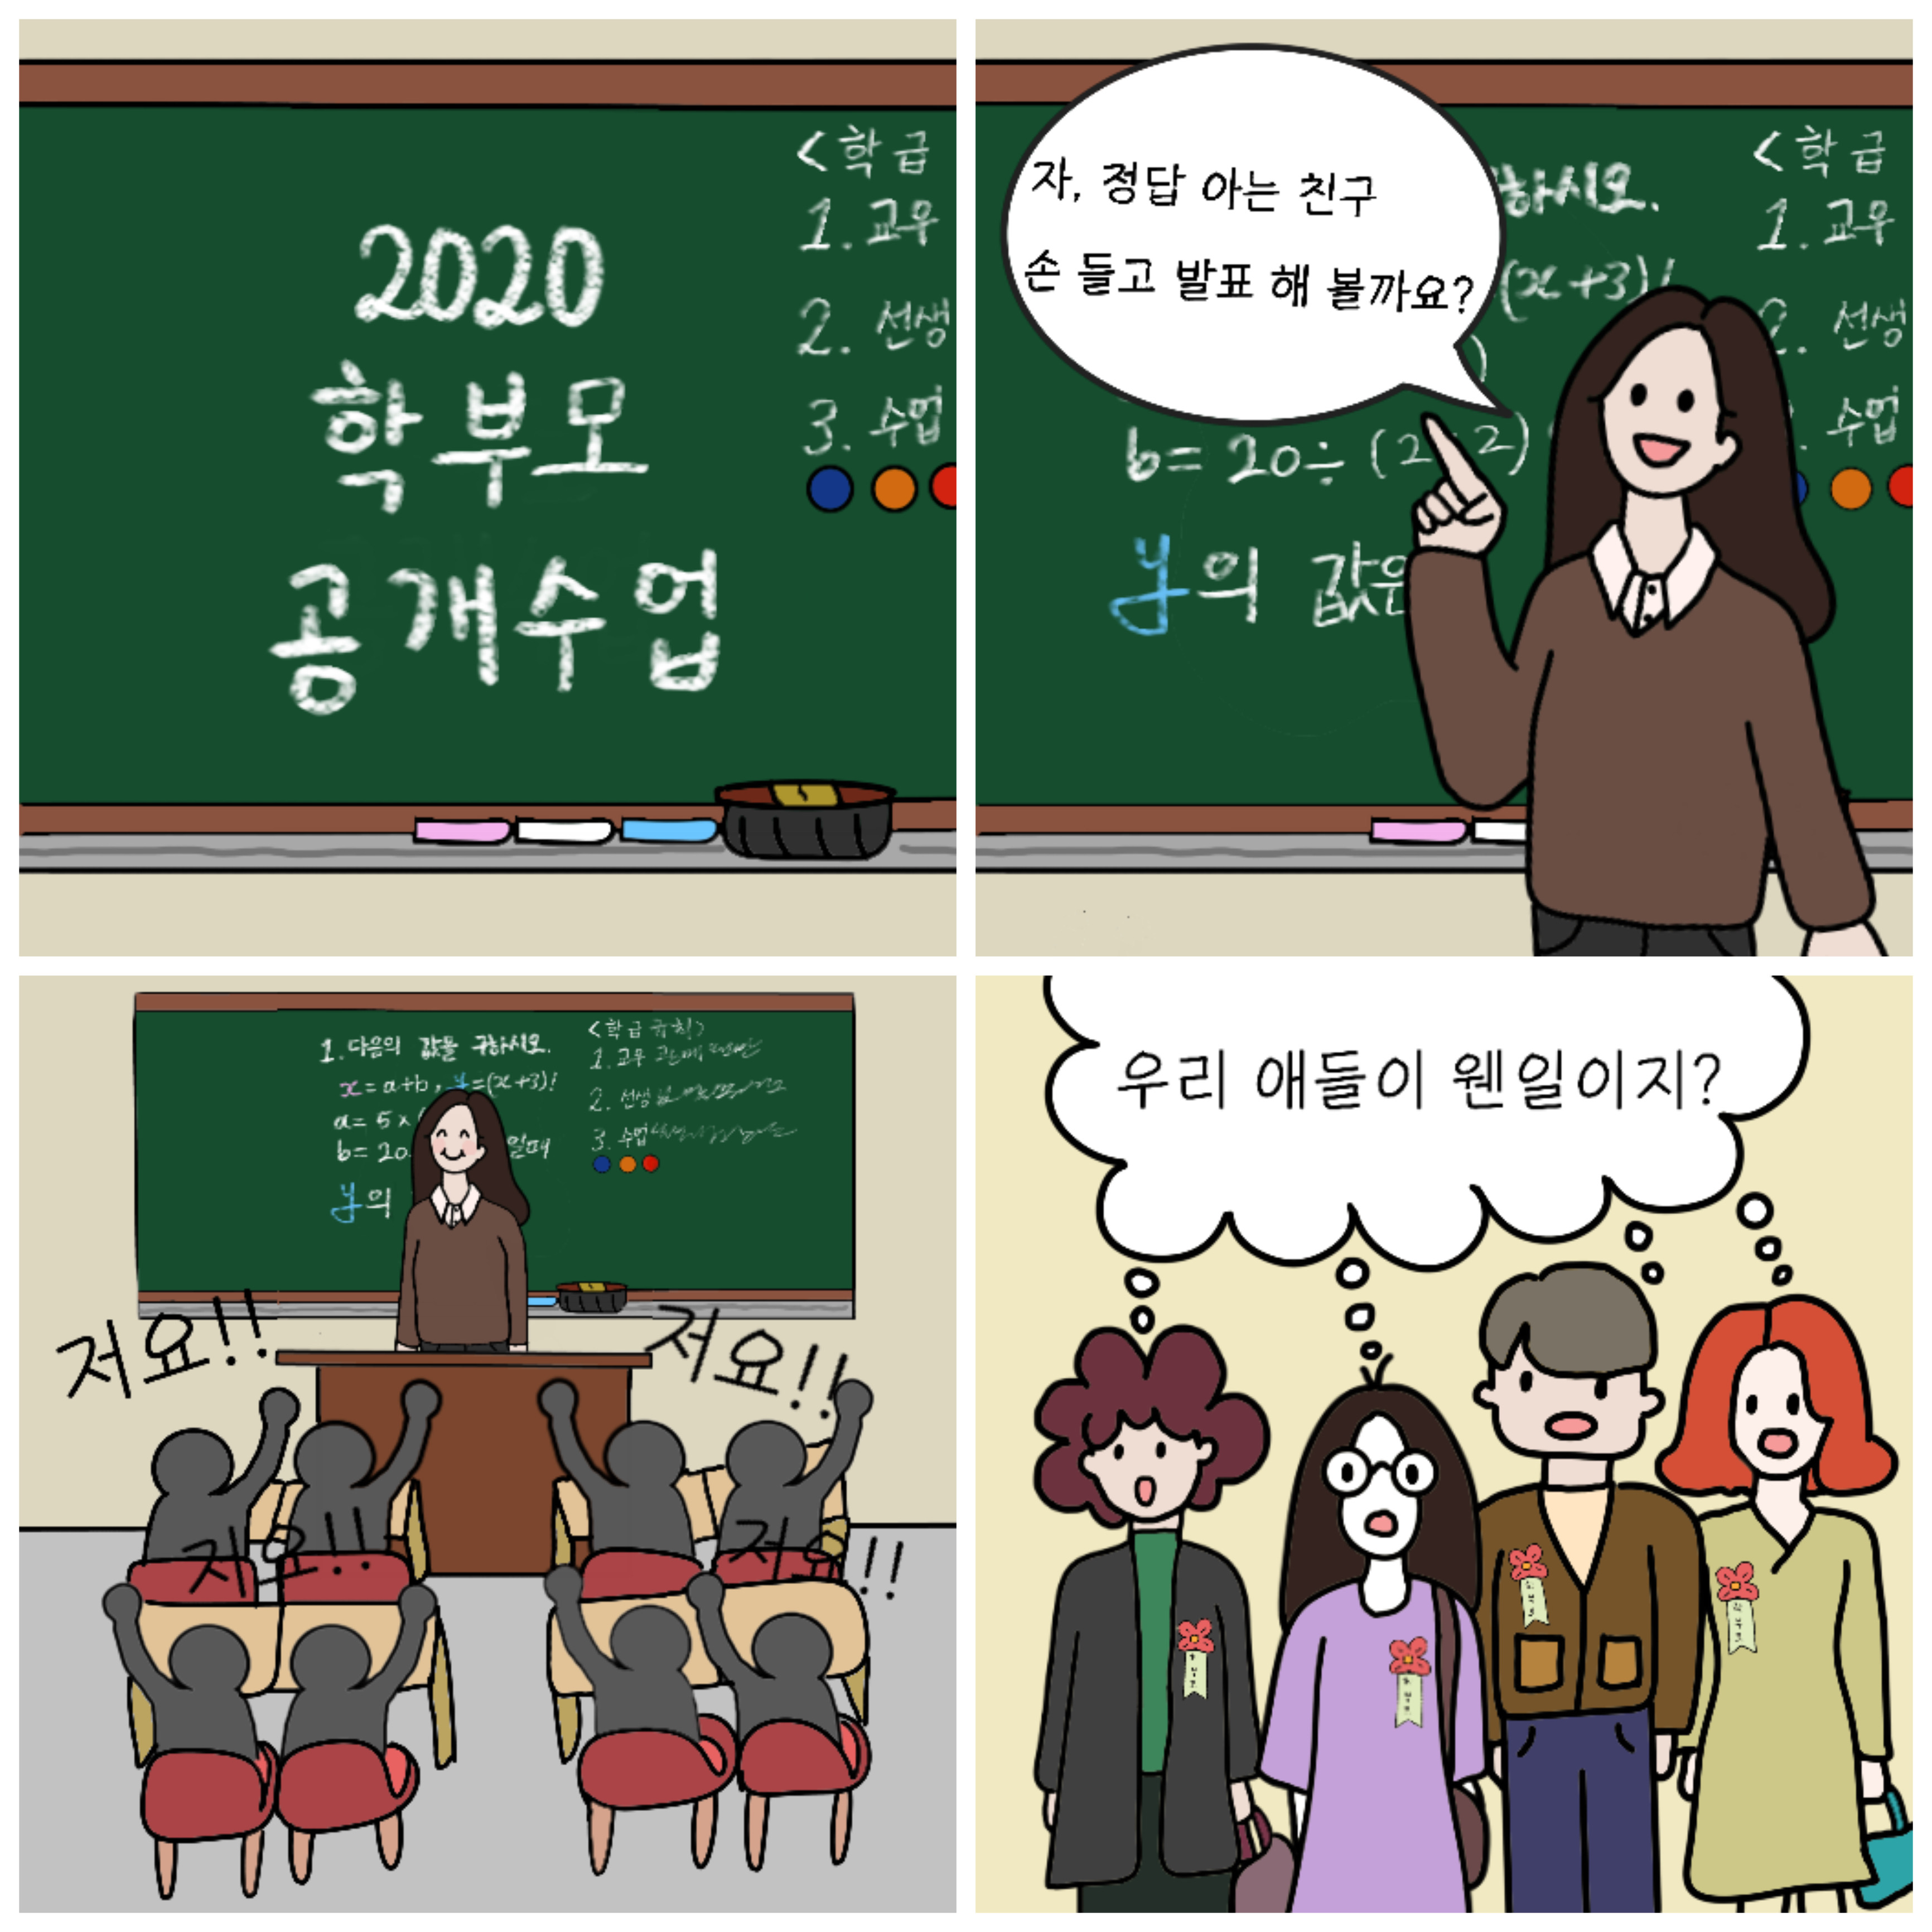 2020
학부모
공개수업
<학급
1. 교우
2. 선생
3. 수업
자, 정답 아는 친구
손 들고 발표 해 볼까요?
하시오.
(x+3)!
b= 20÷ (2 2)
y의 값은
<학급
1. 교우
2. 선생
수업
1. 다음의 값을 구하시오.
x= a+b, y=(x+3)!
a= 5×
b= 20 일때
y의
<학급 규칙>
1. 교우
2. 선생
3. 수업
저요!!
저요!!
저요!!
저요!!
우리 애들이 웬일이지?